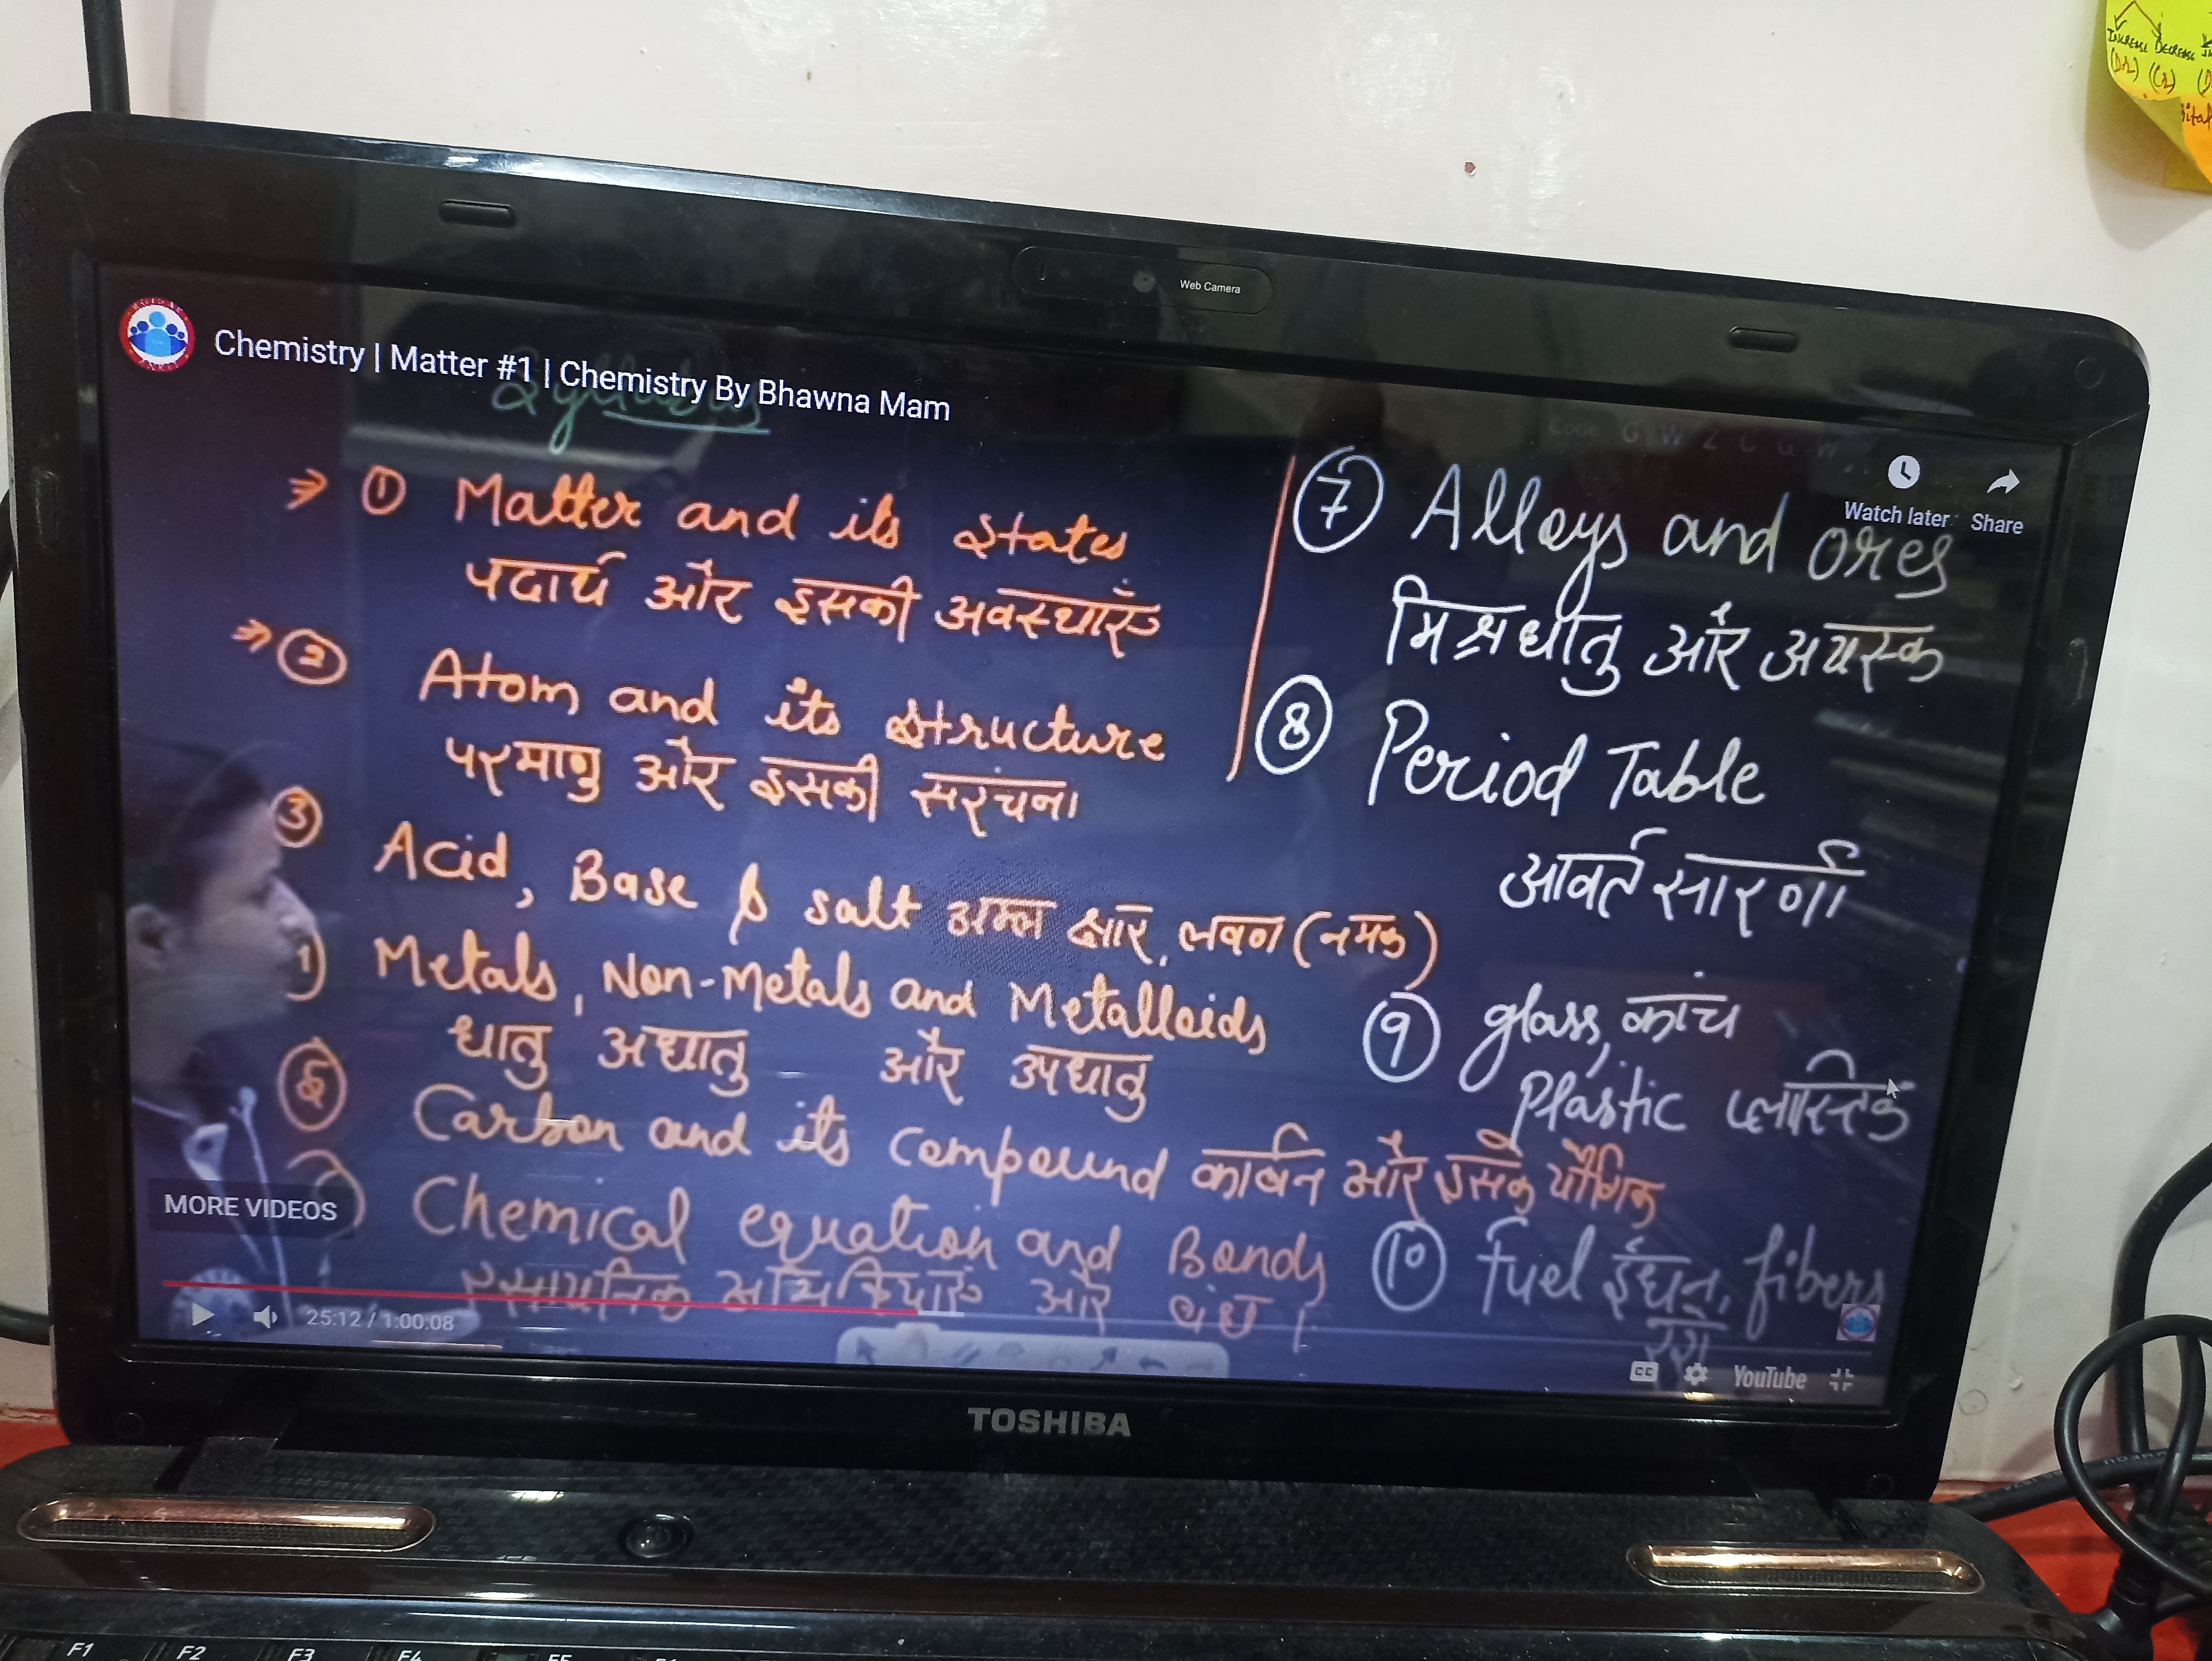 INCREASE DECREASE
Web Camera
Chemistry | Matter #1 | Chemistry By Bhawna Mam
Syllabus
Watch later
Share
① Matter and its states
पदार्थ और इसकी अवस्थाएँ
② Atom and its structure
परमाणु और इसकी सरंचना
③ Acid, Base & salt अम्ल क्षार, लवण (नमक)
Metals, Non-Metals and Metalloids
धातु अधातु और उपधातु
⑤ Carbon and its compound कार्बन और इसके यौगिक
Chemical equation and Bonds
रसायनिक अभिक्रियाएं और बंध।
⑦ Alloys and ores
मिश्रधातु और अयस्क
⑧ Period Table
आवर्त सारणी
⑨ glass, कांच
Plastic प्लास्टिक
⑩ fuel ईंधन, fibers
MORE VIDEOS
25:12 / 1:00:08
CC
YouTube
TOSHIBA
F1 F2 F3 F4 F5